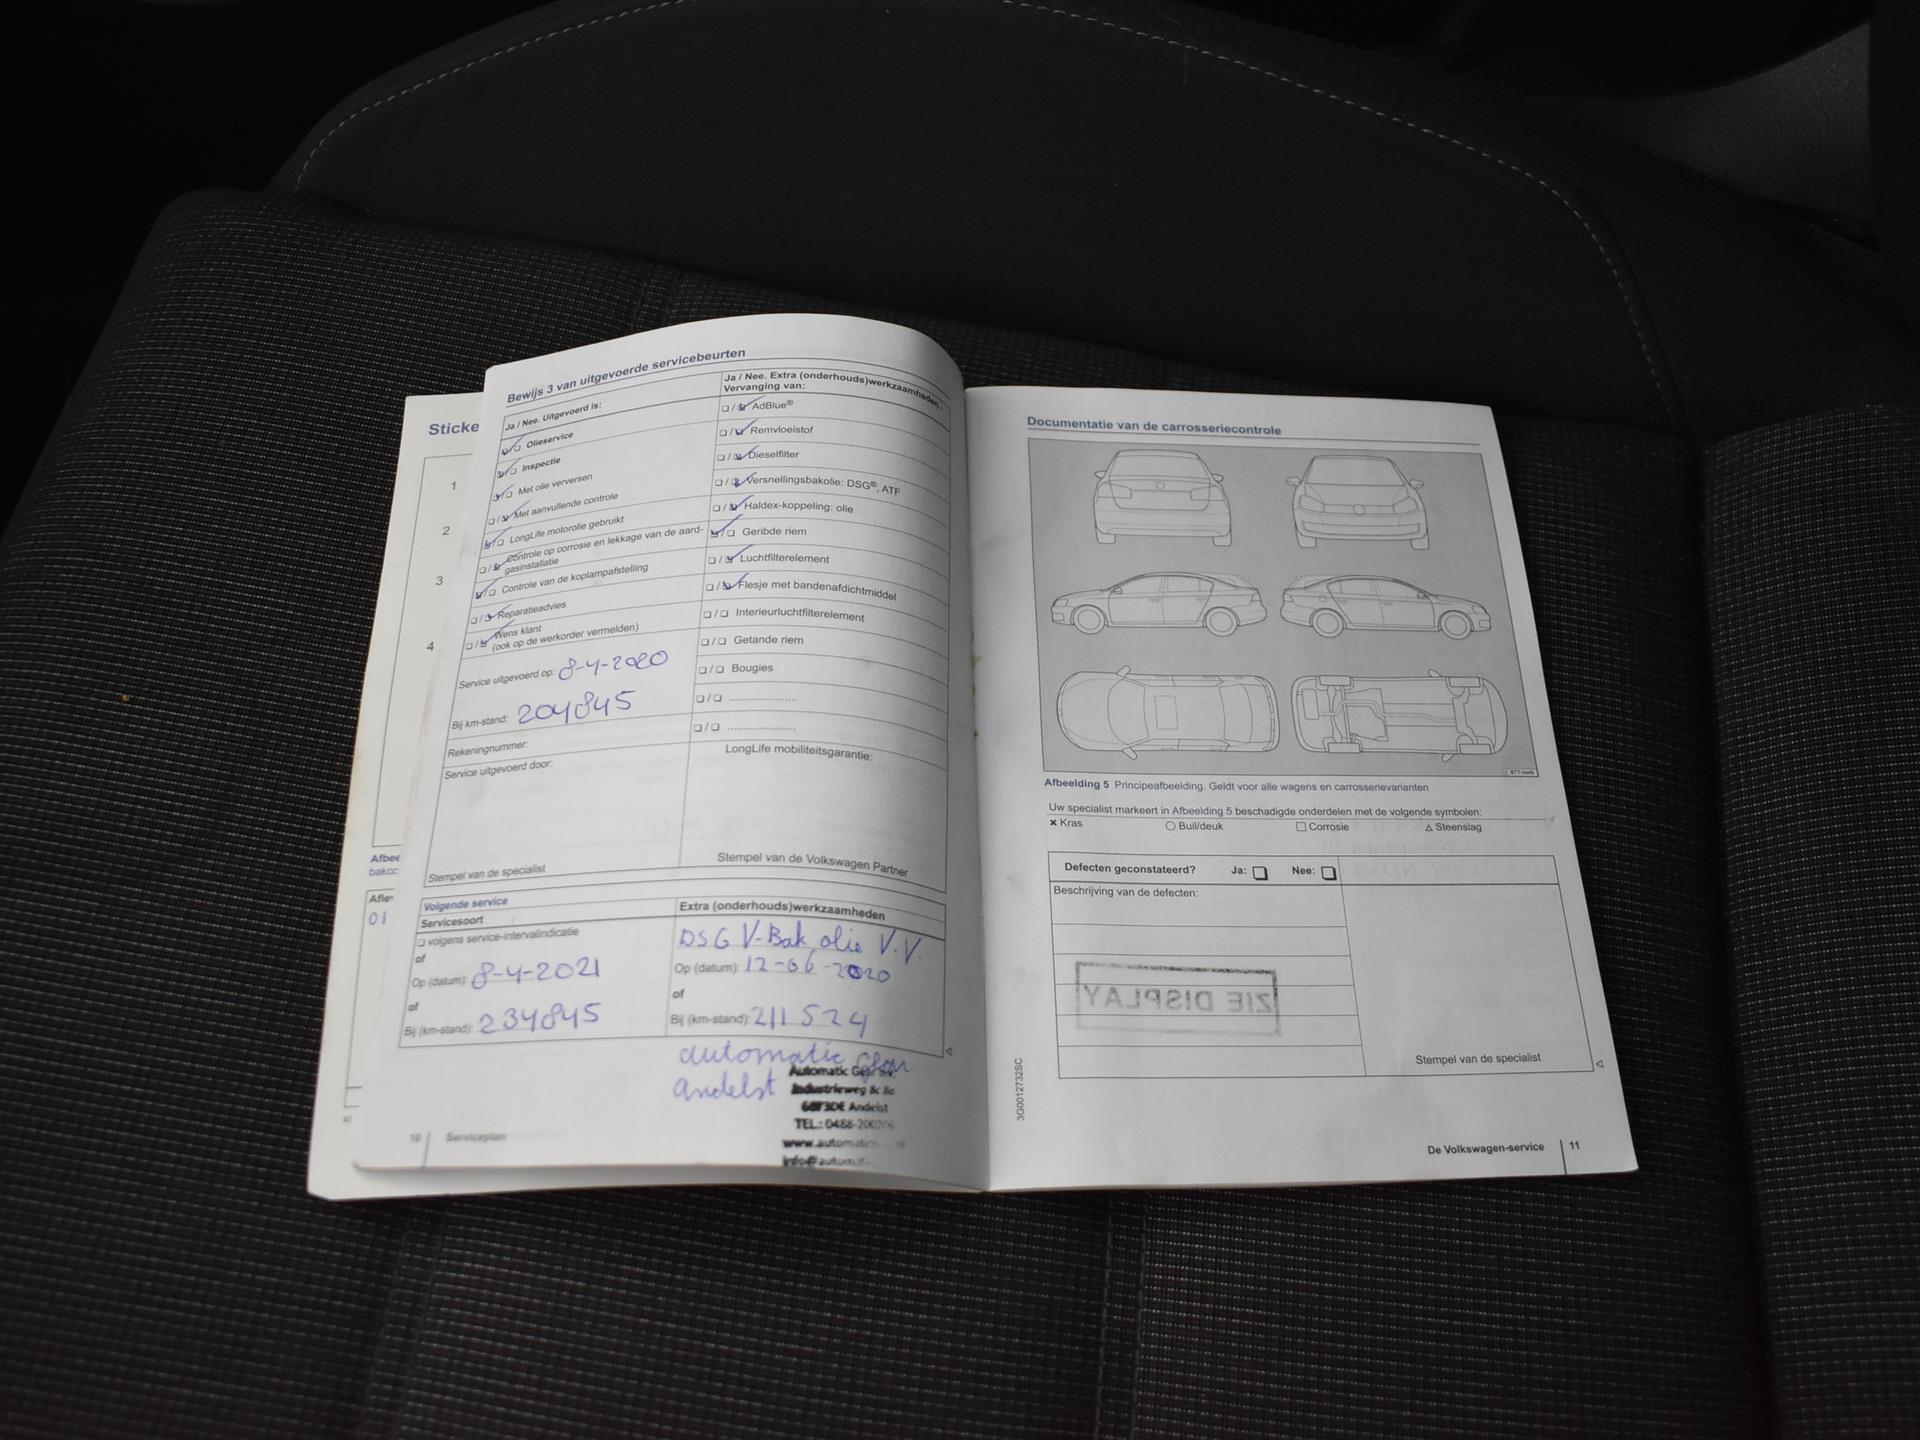 Sticke
1
2
3
4
Afbee
bakcc
Bewijs 3 van uitgevoerde servicebeurten
Ja / Nee. Uitgevoerd is:
Olieservice
Inspectie
Met olie verversen
Met aanvullende controle
LongLife motorolie gebruikt
Controle op corrosie en lekkage van de aard-
gasinstallatie
Controle van de koplampafstelling
Reparatieadvies
Wens klant
(ook op de werkorder vermelden)
Service uitgevoerd op: 8-4-2020
Bij km-stand: 204845
Rekeningnummer:
Service uitgevoerd door:
Stempel van de specialist
Ja / Nee. Extra (onderhouds)werkzaamheden -
Vervanging van:
AdBlue®
Remvloeistof
Dieselfilter
Versnellingsbakolie: DSG®, ATF
Haldex-koppeling: olie
Geribde riem
Luchtfilterelement
Flesje met bandenafdichtmiddel
Interieurluchtfilterelement
Getande riem
Bougies
LongLife mobiliteitsgarantie:
Stempel van de Volkswagen Partner
Volgende service
Servicesoort
volgens service-intervalindicatie
of
Op (datum): 8-4-2021
of
Bij (km-stand): 234845
Extra (onderhouds)werkzaamheden
DSG V-Bak olie V.V.
Op (datum): 12-06-2020
of
Bij (km-stand): 211524
automatic Gear
andelst
Automatic Gear
Industrieweg
Andelst
TEL.: 0488-
www.automatic
info@automat
10 Serviceplan
Documentatie van de carrosseriecontrole
Afbeelding 5 Principeafbeelding. Geldt voor alle wagens en carrosserievarianten
Uw specialist markeert in Afbeelding 5 beschadigde onderdelen met de volgende symbolen:
Kras Buil/deuk Corrosie Steenslag
Defecten geconstateerd? Ja: Nee:
Beschrijving van de defecten:
ZIE DISPLAY
Stempel van de specialist
3G0012732SC
De Volkswagen-service 11